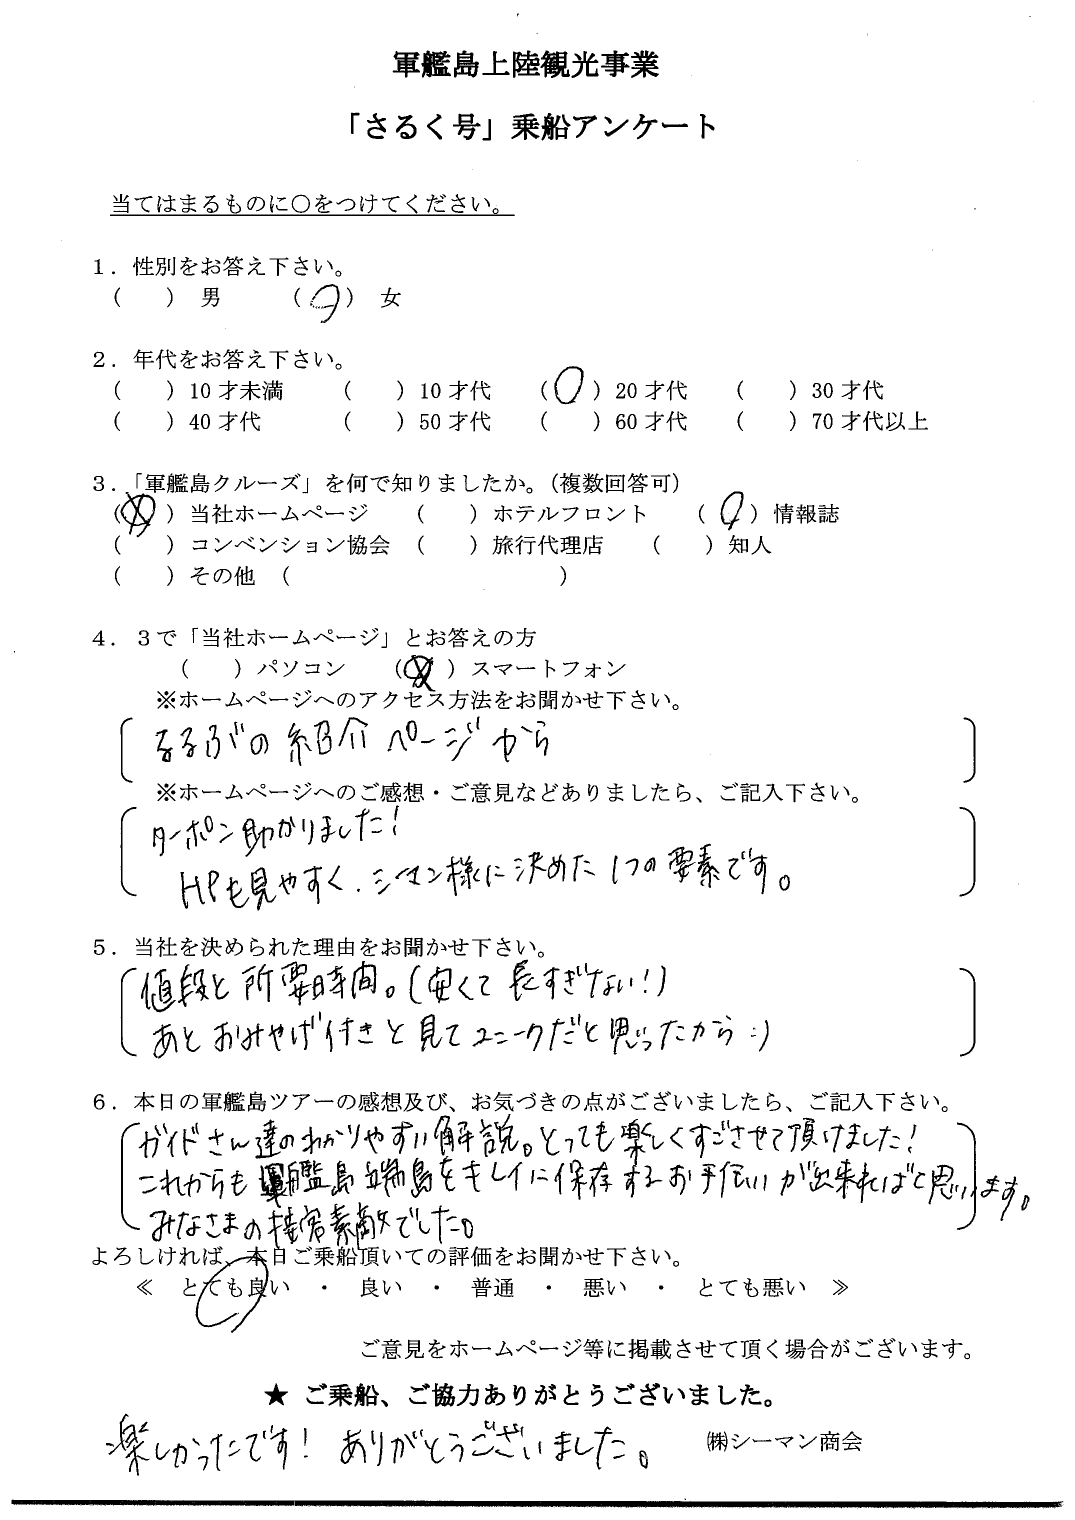 軍艦島上陸観光事業
「さるく号」乗船アンケート
当てはまるものに○をつけてください。
１．性別をお答え下さい。
(　　) 男　　(○) 女
２．年代をお答え下さい。
(　　) 10才未満　　(　　) 10才代　　(○) 20才代　　(　　) 30才代
(　　) 40才代　　(　　) 50才代　　(　　) 60才代　　(　　) 70才代以上
３．「軍艦島クルーズ」を何で知りましたか。（複数回答可）
(　　) 当社ホームページ　　(　　) ホテルフロント　　(○) 情報誌
(　　) コンベンション協会　(　　) 旅行代理店　　(　　) 知人
(　　) その他　(　　　　　　　　　　)
４．３で「当社ホームページ」とお答えの方
(　　) パソコン　　(　　) スマートフォン
※ホームページへのアクセス方法をお聞かせ下さい。
るるぶの紹介ページから
※ホームページへのご感想・ご意見などありましたら、ご記入下さい。
クーポン助かりました！
HPも見やすく、シーマン様に決めた1つの要素です。
５．当社を決められた理由をお聞かせ下さい。
値段と所要時間。(安くて長すぎない！)
あとおみやげ付きと見てユニークだと思ったから :)
６．本日の軍艦島ツアーの感想及び、お気づきの点がございましたら、ご記入下さい。
ガイドさん達のわかりやすい解説。とっても楽しくすごさせて頂けました！
これからも軍艦島 端島をキレイに保存するお手伝いが出来ればと思います。
みなさまの接客素敵でした。
よろしければ、本日ご乗船頂いての評価をお聞かせ下さい。
≪　とても良い　・　良い　・　普通　・　悪い　・　とても悪い　≫
ご意見をホームページ等に掲載させて頂く場合がございます。
★ ご乗船、ご協力ありがとうございました。
楽しかったです！ ありがとうございました。　㈱シーマン商会